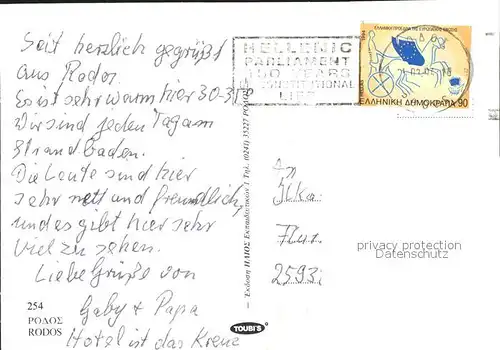 Seit herzlich gegrüßt
aus Rodos.
Es ist sehr warm hier 30-35°
Wir sind jeden Tag am
Strand baden.
Die Leute sind hier
sehr nett und freundlich,
und es gibt hier sehr
viel zu sehen.
Liebe Grüße von
Gaby + Papa
Hotel ist das Kreuz
254
ΡΟΔΟΣ
RODOS
TOUBI'S
Έκδοση ΗΛΙΟΣ Εκπαιδευτικών 1 Τηλ. (0241) 35227 ΡΟΔΟΣ
HELLENIC
PARLIAMENT
150 YEARS
CONSTITUTIONAL
LIFE
ΕΛΛΗΝΙΚΗ ΠΡΟΕΔΡΙΑ ΤΗΣ ΕΥΡΩΠΑΪΚΗΣ ΕΝΩΣΗΣ
1994
HELLAS
ΕΛΛΗΝΙΚΗ ΔΗΜΟΚΡΑΤΙΑ 90
An
Ilka
Flur.
2593
privacy protection
Datenschutz